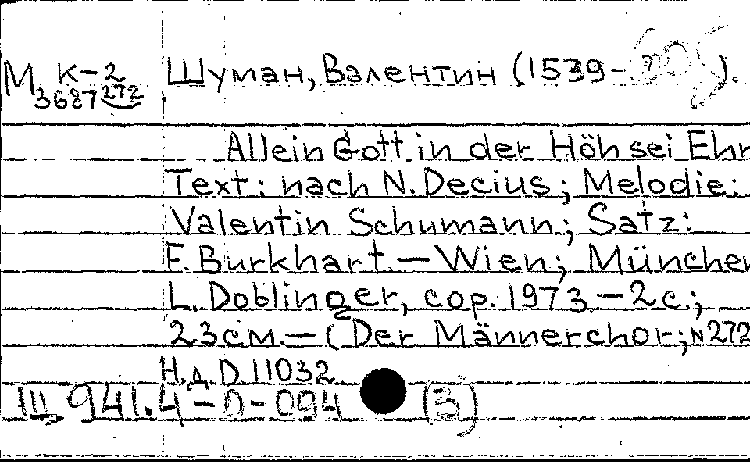 М К-2 Шуман, Валентин (1539-    ).
3687 272
Allein Gott in der Höh sei Ehr
Text: nach N. Decius; Melodie:
Valentin Schumann; Satz:
F. Burkhart. — Wien; München
L. Doblinger, cop. 1973 — 2 с.;
23 см. — (Der Männerchor; N 272
Н.д. D. 11032
III 941.4-0-094 (3)